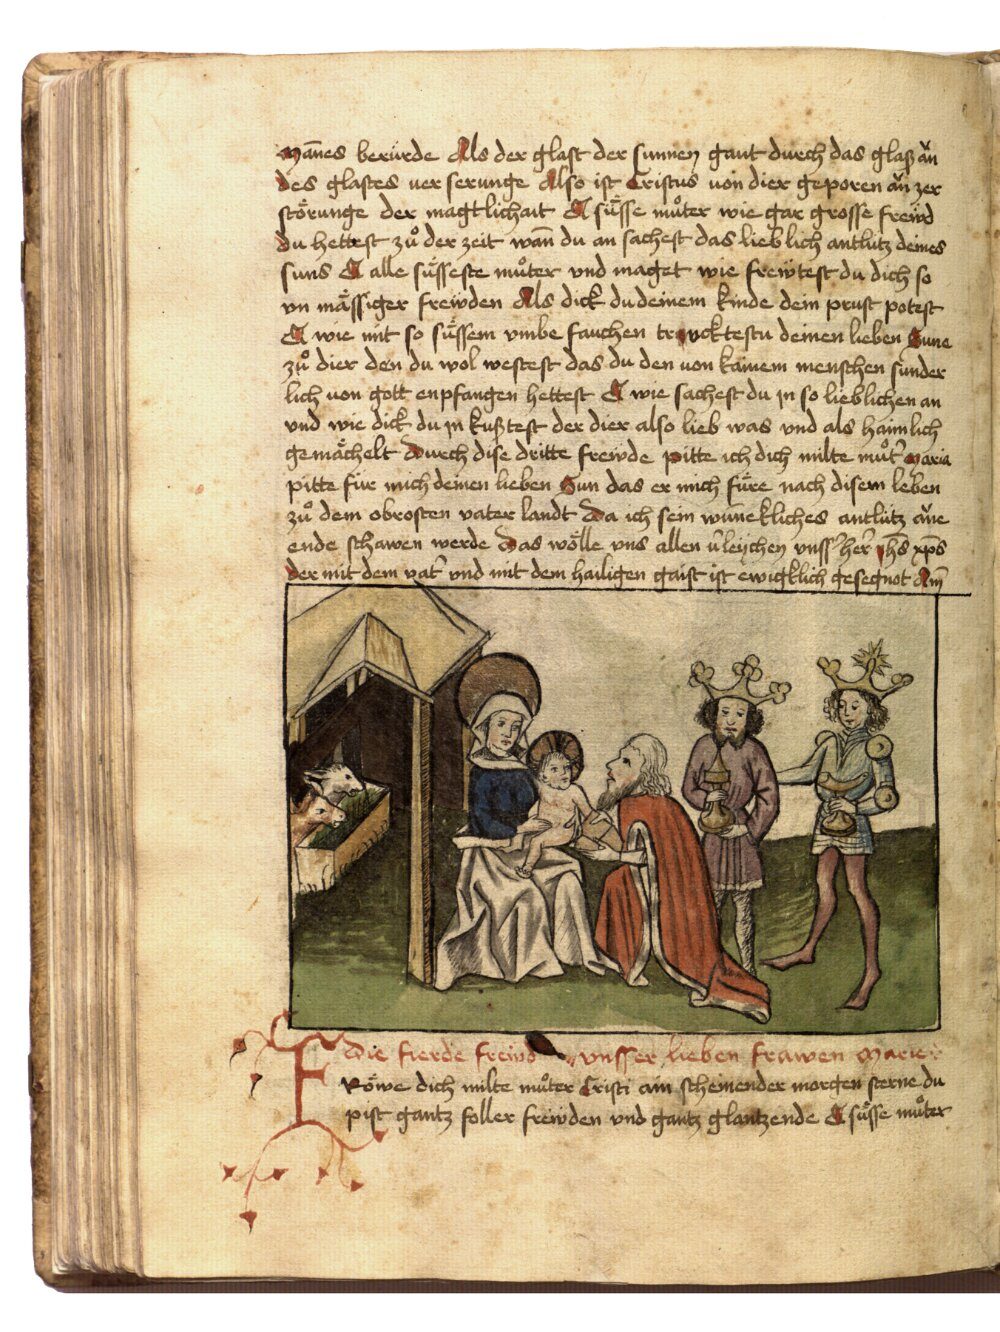 Mañes berürde Als der glast der sunnen gaut durch das glaß añ
des glastes ver serunge Also ist Cristus von dier geporen añ zer
störunge der magtlichait O süsse můter wie gar grosse freẅd
du hettest zů der zeit wañ du an sachest das lieblich antlütz deines
suns O alle süsseste můter vnd maget wie freẅtest du dich so
vn mässiger freẅden Als dick du deinem kinde dein prust potest
O wie mit so süssem vmbe fauchen trucktestu deinen lieben Sune
zů dier den du wol westest das du den von kainem menschen sunder
lich von gott enpfangen hettest O wie sachest du jn so lieblichen an
vnd wie dick du jn kußtest der dier also lieb was vnd als haimlich
gemächelt Durch dise dritte freẅde pitte ich dich milte můt' Maria
pitte für mich deinen lieben Sun das er mich füre nach disem leben
zů dem obrosten vater landt Da ich sein wunekliches antlütz añe
ende schawen werde Das wölle vns allen v'leychen vnss' her' jhs xps
der mit dem vat' vnd mit dem hailigen gaist ist ewigklich gesegnot Am̄
Die fierde freẅd vnsser lieben frawen Marie
FRöwe dich milte můter Cristi ain scheinender morgen sterne du
pist gantz foller freẅden vnd gantz glantzende O süsse můter